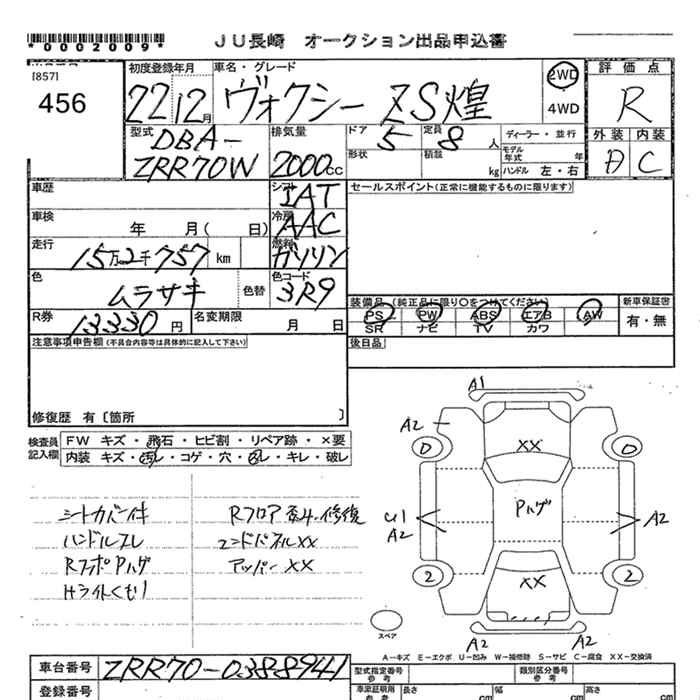 *0002009*
JU長崎 オークション出品申込書
[857]
456
初度登録年月
22 12月
車名・グレード
ヴォクシー ZS煌
2WD
4WD
評価点
R
型式
DBA-
ZRR70W
排気量
2000cc
ドア 5
定員 8人
ディーラー・並行
形状
積載 kg
モデル年式 年
ハンドル 左・右
外装 内装
C
車歴
シフト
IAT
セールスポイント(正常に機能するものに限ります)
車検 年 月( 日)
冷房
AAC
走行 15万2千757 km
燃料
ガソリン
色 ムラサキ
色替
色コード
3R9
装備品(純正品に限り〇をつけてください)
新車保証書
PS PW ABS エアB AW
有・無
SR ナビ TV カワ
R券 13330円
名変期限 月 日
注意事項申告欄(不具合内容等は具体的に記入して下さい)
後日品
修復歴 有〔箇所 〕
検査員記入欄
FW キズ・飛石・ヒビ割・リペア跡・×要
内装 キズ・汚れ・コゲ・穴・
・キレ・破し
シートカバー付
ハンドルスレ
RフロPハゲ
Hライトくもり
Rフロア
修復
エンドパネルXX
アッパーXX
A1
A2
XX
0
0
Pハゲ
U1
A2
A2
2
2
XX
A2
A2
スペア
A-キズ E-エクボ U-凹み W-補修跡 S-サビ C-腐食 XX-交換済
車台番号 ZRR70-0388941
登録番号
型式指定番号
参考
類別区分番号
参考
車庫証明用
参考
長さ cm
幅 cm
高さ cm